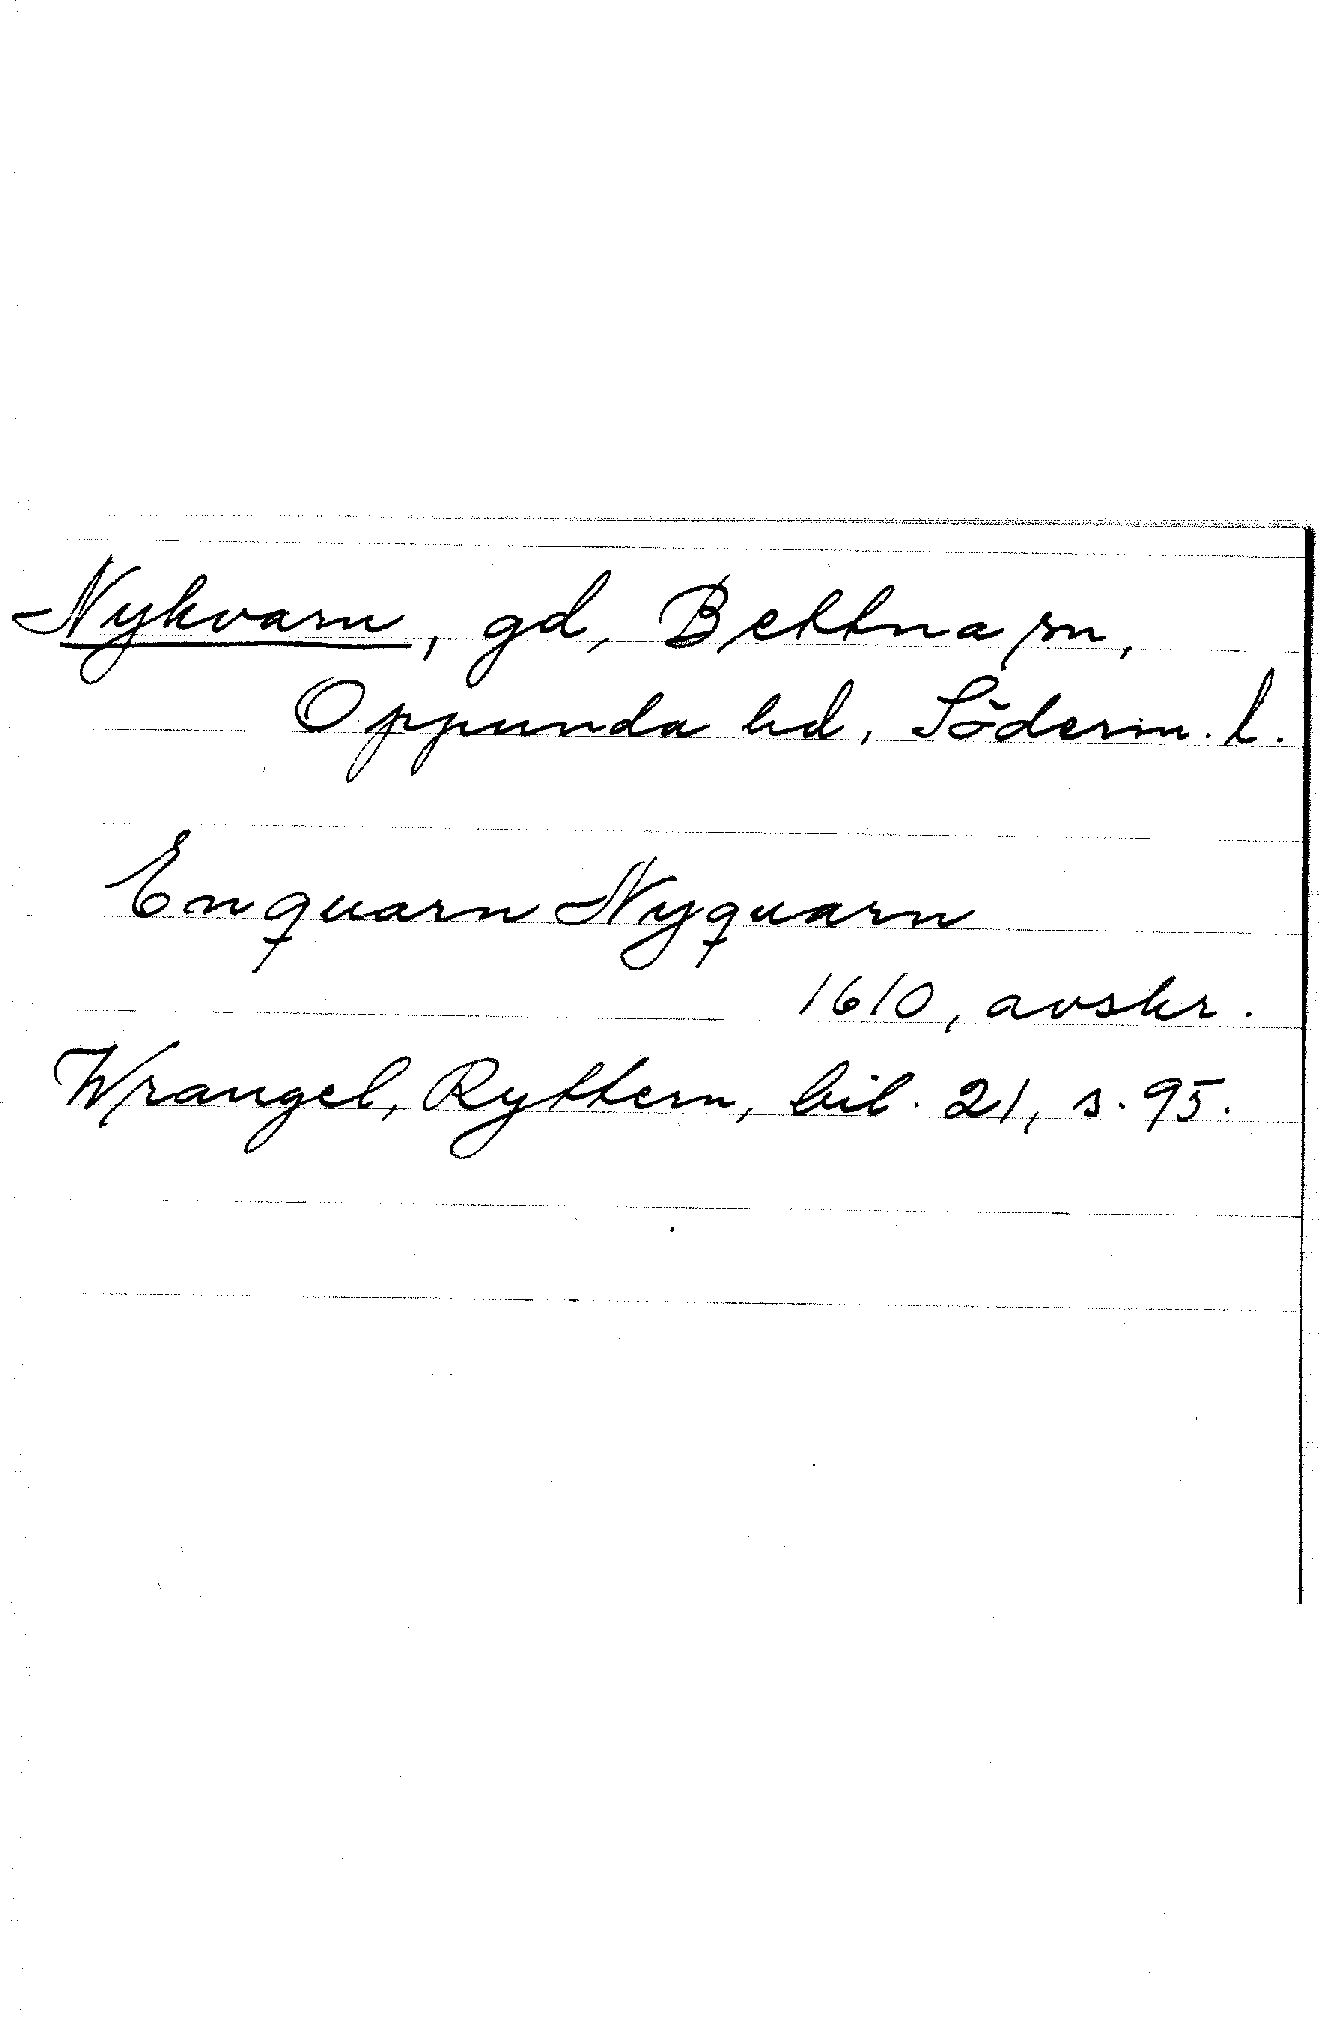 Nykvarn, gd, Bettna sn,
Oppunda hd, Söderm. l.
Enquarn Nyquarn
1610, avskr.
Wrangel, Ryttern, bil. 21, s. 95.